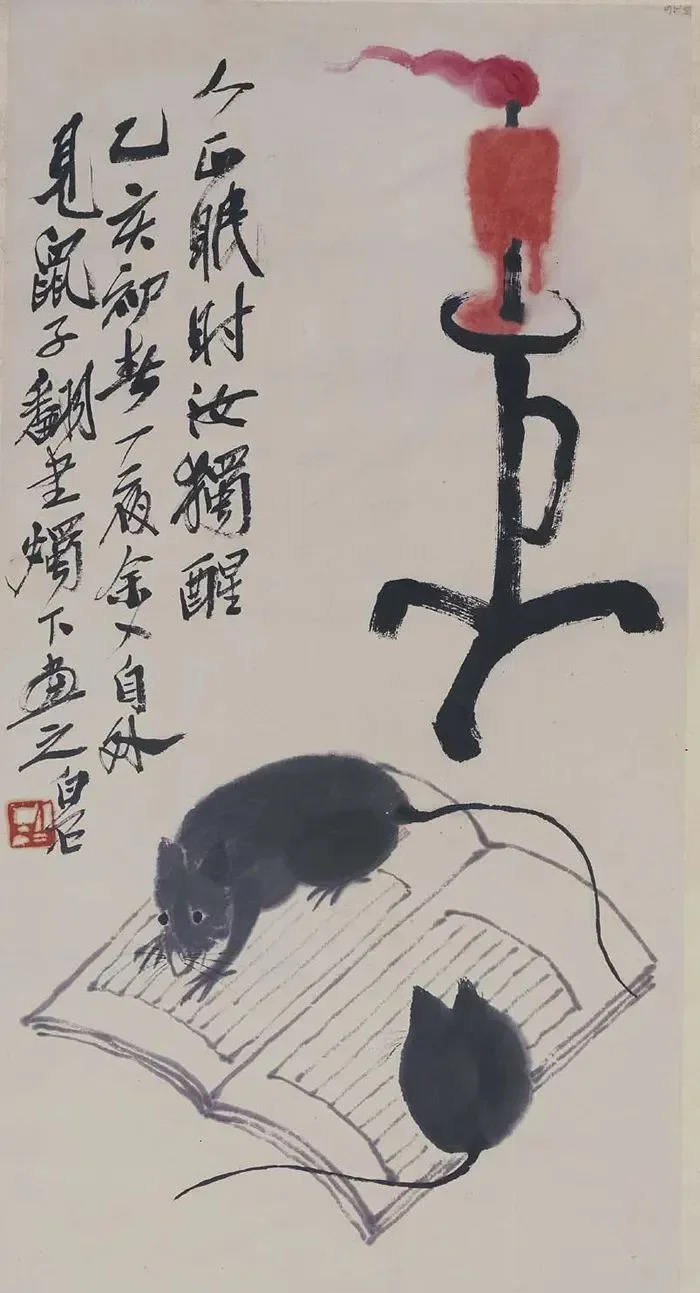 人正眠時汝獨醒
乙亥初春一夜余又自外
見鼠子翻書燭下畫之白石